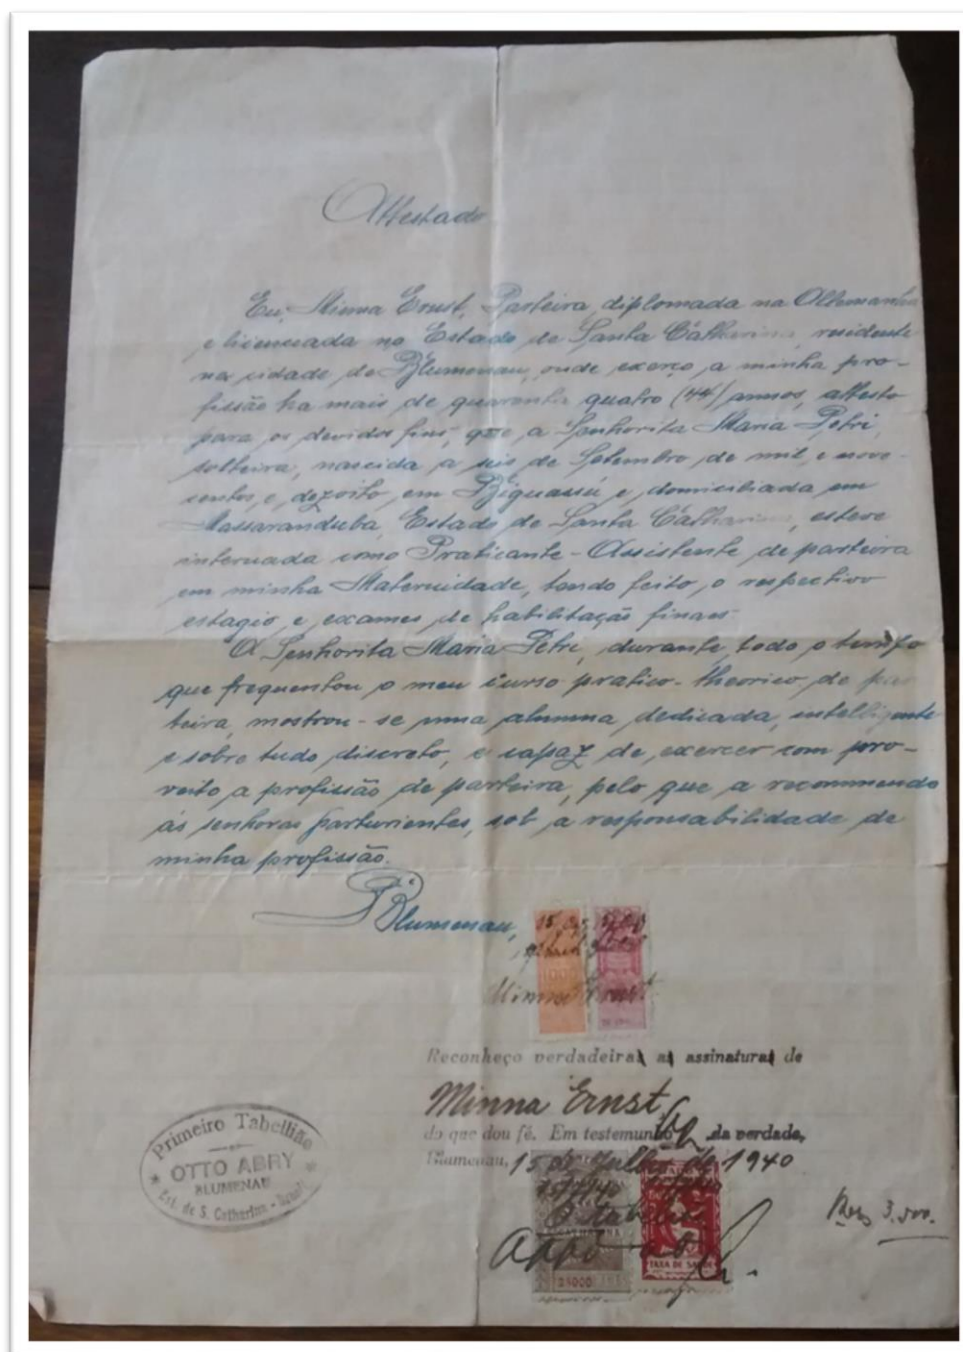 Attestado
Eu, Minna Ernst, Parteira, diplomada na Allemanha
e licenciada no Estado de Santa Catharina, residente
na cidade de Blumenau, onde exerço a minha pro-
fissão ha mais de quarenta quatro (44) annos, attesto
para os devidos fins, que a Senhorita Maria Petri,
solteira, nascida a seis de Setembro de mil e nove-
centos e dezoito, em Biguassú e domiciliada em
Massaranduba, Estado de Santa Catharina, esteve
internada como Praticante-Assistente de parteira
em minha Maternidade, tendo feito o respectivo
estagio e exames de habilitação finaes.
A Senhorita Maria Petri, durante todo o tempo
que frequentou o meu curso pratico-theorico de par
teira, mostrou-se uma alumna dedicada, intelligente
e sobre tudo discreta, e capaz de exercer com pro-
veito a profissão de parteira, pelo que a recommendo
ás senhoras parturientes, sob a responsabilidade de
minha profissão.
Blumenau,
Minna Ernst
Reconheço verdadeira a assinatura de
Minna Ernst
do que dou fé. Em testemunho da verdade,
Blumenau, 15 de Julho de 1940
Primeiro Tabellião
OTTO ABRY
BLUMENAU
Est. de S. Catharina - Brasil
O tabelião
2$000
TAXA DE SAÚDE
3.500.